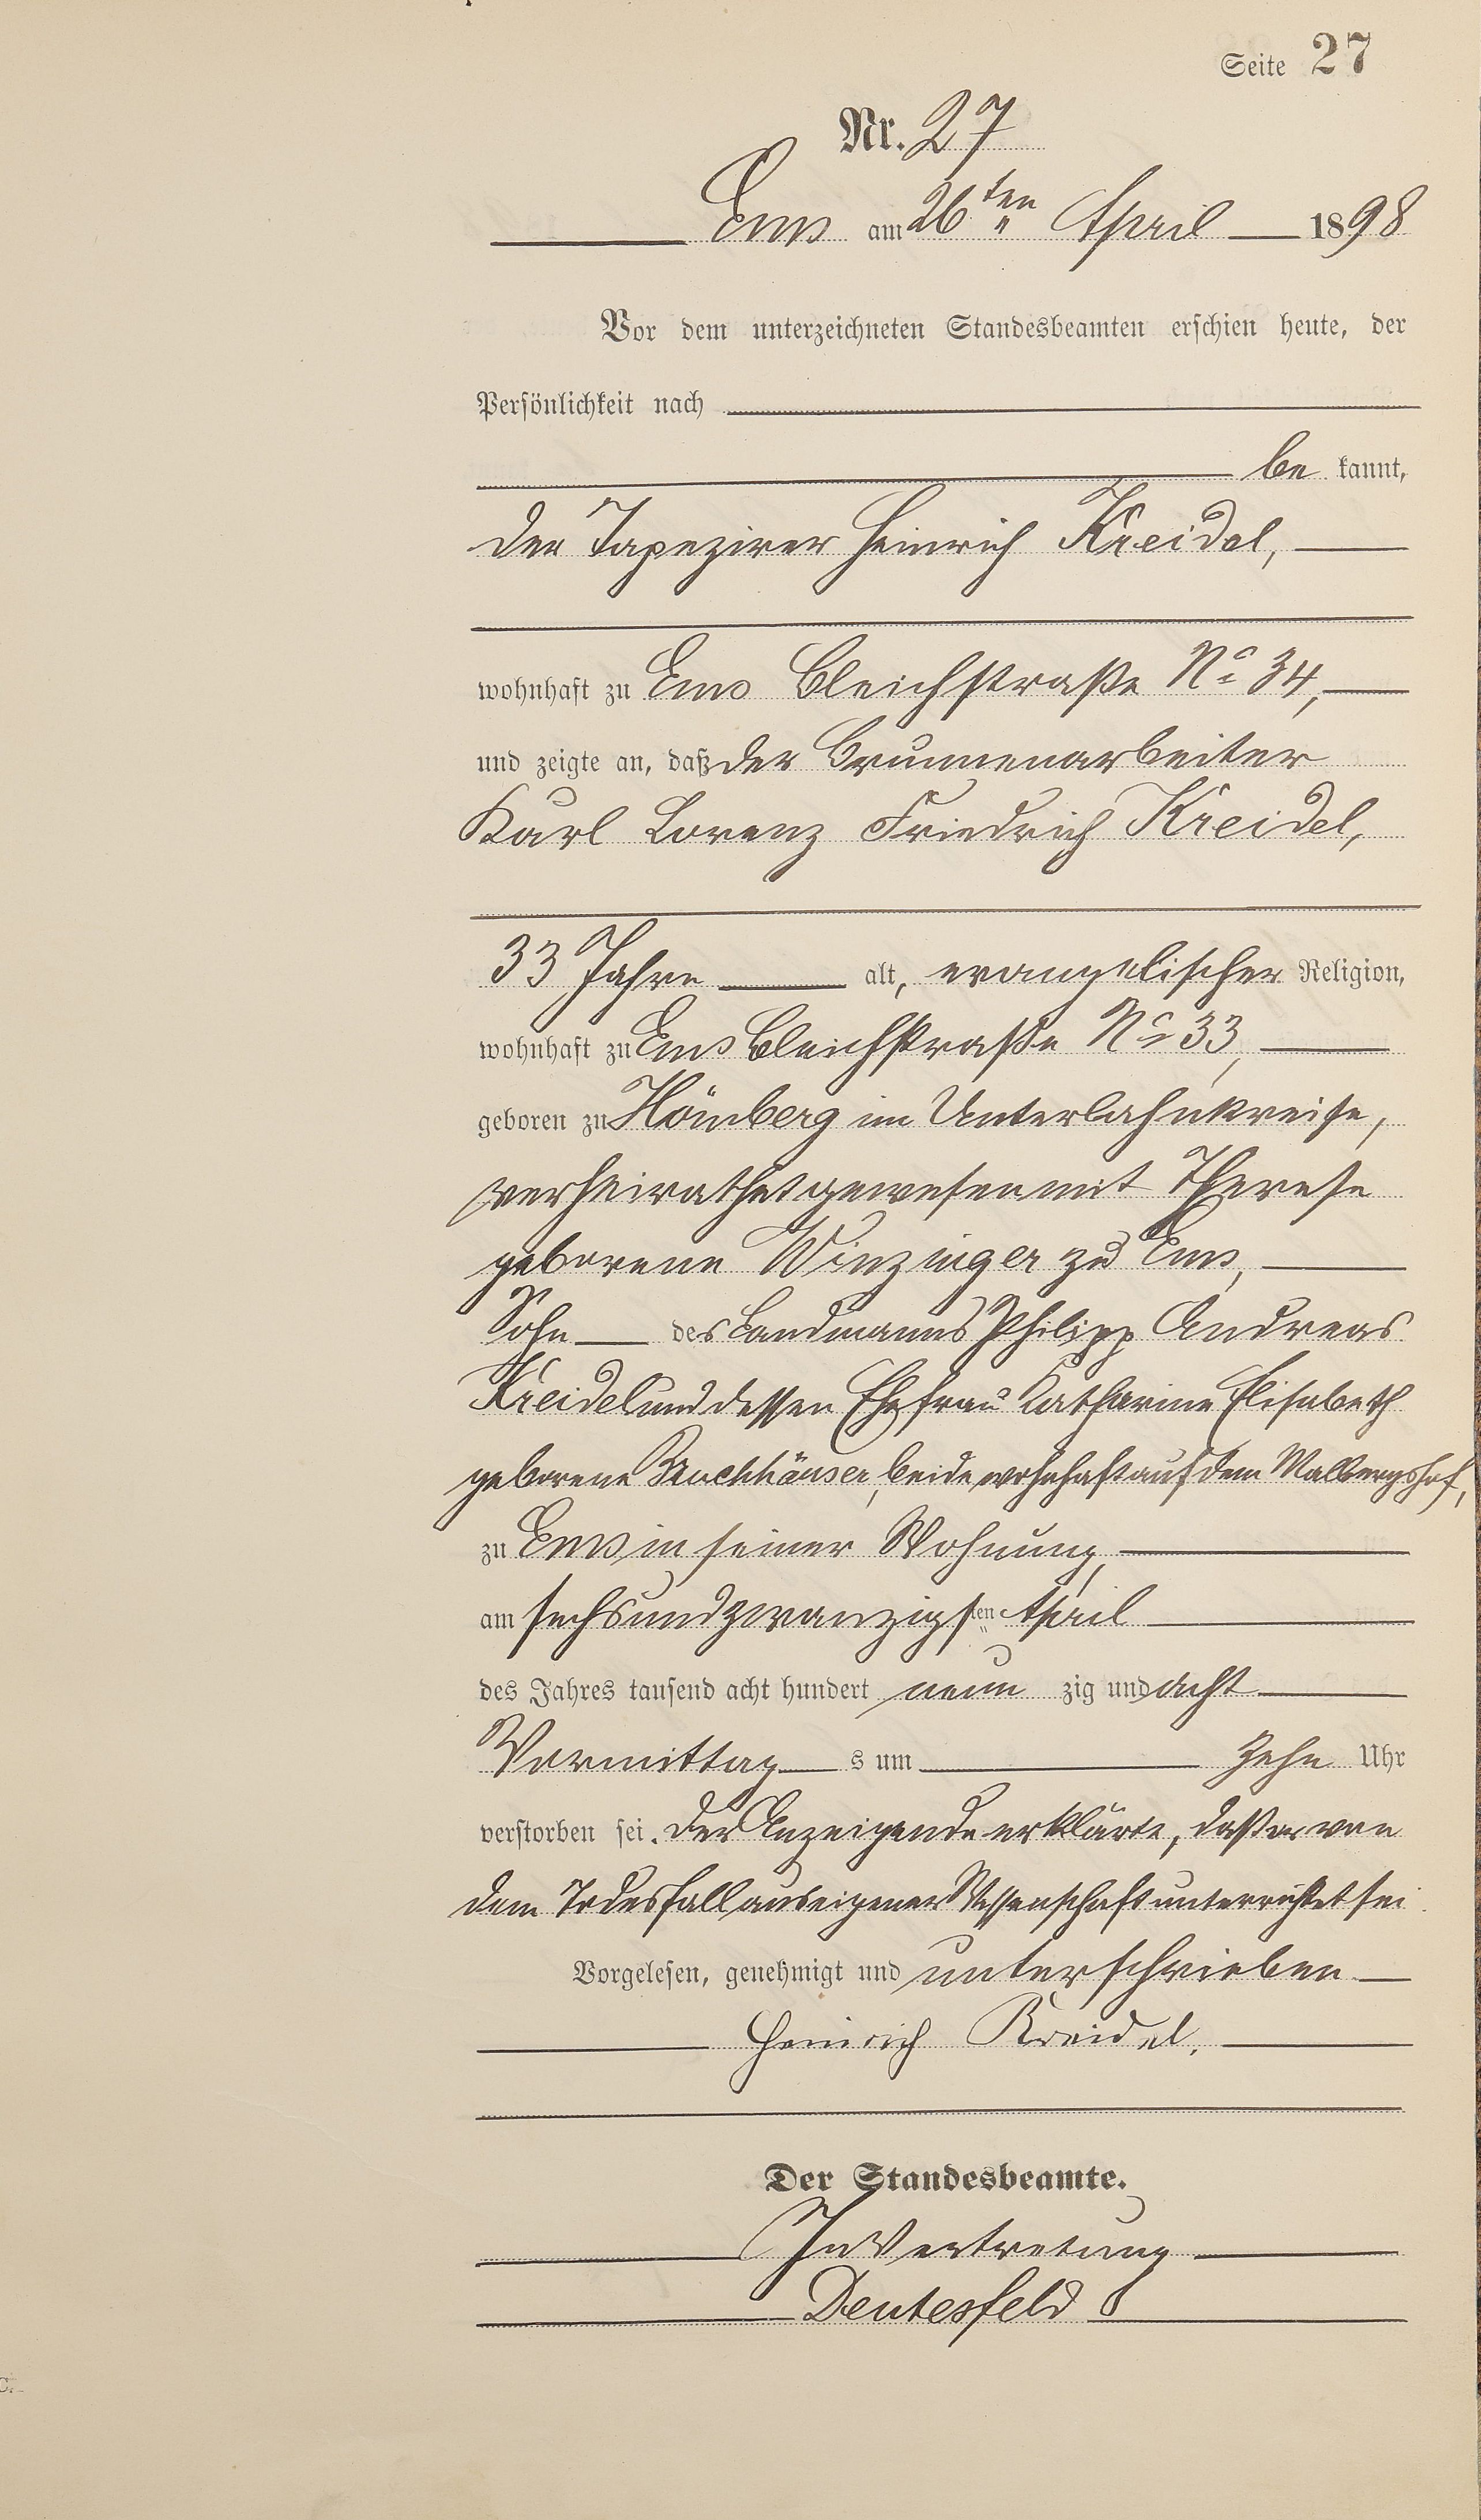 Seite 27
Nr. 27
Ems am 26ten April 1898
Vor dem unterzeichneten Standesbeamten erschien heute, der
Persönlichkeit nach
be kannt,
der Tapezirer Heinrich Kreidel,
wohnhaft zu Ems Bleichstraße No 34,
und zeigte an, daß der Brunnenarbeiter
Karl Lorenz Friedrich Kreidel,
33 Jahre alt, evangelischer Religion,
wohnhaft zu Ems Bleichstraße No 33,
geboren zu Hömberg im Unterlahnkreise,
verheirathet gewesen mit Therese
geborene Winzinger zu Ems,
Sohn des Landmanns Philipp Andreas
Kreidel und dessen Ehefrau Katharine Elisabeth
geborene Bruchhäuser, beide wohnhaft auf dem Malbergshof,
zu Ems in seiner Wohnung,
am sechsundzwanzigsten April
des Jahres tausend acht hundert neun zig und acht
Vormittag s um zehn Uhr
verstorben sei. Der Anzeigende erklärte, daß er von
dem Todesfall aus eigener Wissenschaft unterrichtet sei
Vorgelesen, genehmigt und unterschrieben
Heinrich Kreidel.
Der Standesbeamte.
In Vertretung
Deutesfeld